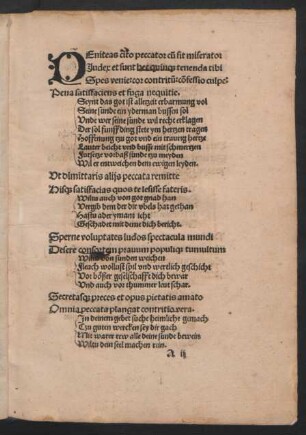 PEniteas cito peccator cū sit miserator
Judex et sunt hec quinqȝ tenenda tibi
Spes venie: cor contritū: cōfessio culpe
Pena satisfaciens et fuga nequitie.
Seynt das got ist allezeit erbarmung vol
Seine sunde eyn yderman bussen sol
Vnde wer seine sunde wil recht erklagen
Der sol funff ding stetz ym hertzen tragen
Hoffnung czu got vnd ein traurig hertze
Lauter beicht vnd busse mit schmertzen
Furseze vorbas sunde zu meyden
Wil er entweichen dem ewigen leyden.
Ut dimittaris alijs peccata remitte
Disqȝ satisfacias quos te lesisse fateris.
Wiltu auch von got gnad han
Vergib dem der dir vbels hat gethan
Hastu aber ymant icht
Geschadet mit dem dich bericht.
Sperne voluptates ludos spectacula mundi
Desere consortem prauum populiqȝ tumultum
Wiltu von sunden weichen
Fleuch wollust spil vnd werltlich geschicht
Vor böszer geselschafft dich bewar
Vnd auch vor thummer leut schar.
Secretasqȝ preces et opus pietatis amato
Omnia peccata plangat contritio vera.
In deinem gebet suche heimliche gemach
Czu guten wercken sey dir gach
Mit warer rew alle deine sunde bewein
Wiltu dein seel machen rein.
A ij